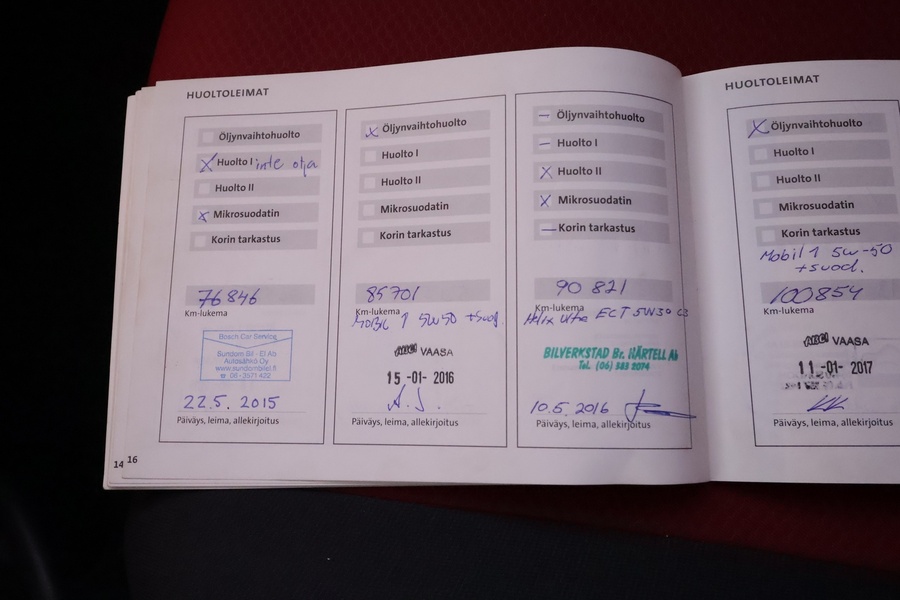 HUOLTOLEIMAT
Öljynvaihtohuolto
X Huolto I inte olja
Huolto II
X Mikrosuodatin
Korin tarkastus
76846
Km-lukema
Bosch Car Service
Sundom Bil - El Ab
Autosähkö Oy
www.sundombilel.fi
☎ 06-3571 422
22.5. 2015
Päiväys, leima, allekirjoitus
X Öljynvaihtohuolto
Huolto I
Huolto II
Mikrosuodatin
Korin tarkastus
85701
Km-lukema
MOBIL 1 5W50 +suod.
ABC VAASA
15 -01- 2016
A.J.
Päiväys, leima, allekirjoitus
– Öljynvaihtohuolto
– Huolto I
X Huolto II
X Mikrosuodatin
– Korin tarkastus
90 821
Km-lukema
Helix Ultra ECT 5W30 C3
BILVERKSTAD Br. NÄRTELL Ab
Tel. (06) 383 2074
10.5. 2016
Päiväys, leima, allekirjoitus
14 16
HUOLTOLEIMAT
X Öljynvaihtohuolto
Huolto I
Huolto II
Mikrosuodatin
Korin tarkastus
Mobil 1 5w-50
+suod.
100854
Km-lukema
ABC VAASA
11 -01- 2017
KK
Päiväys, leima, allekirjoitus